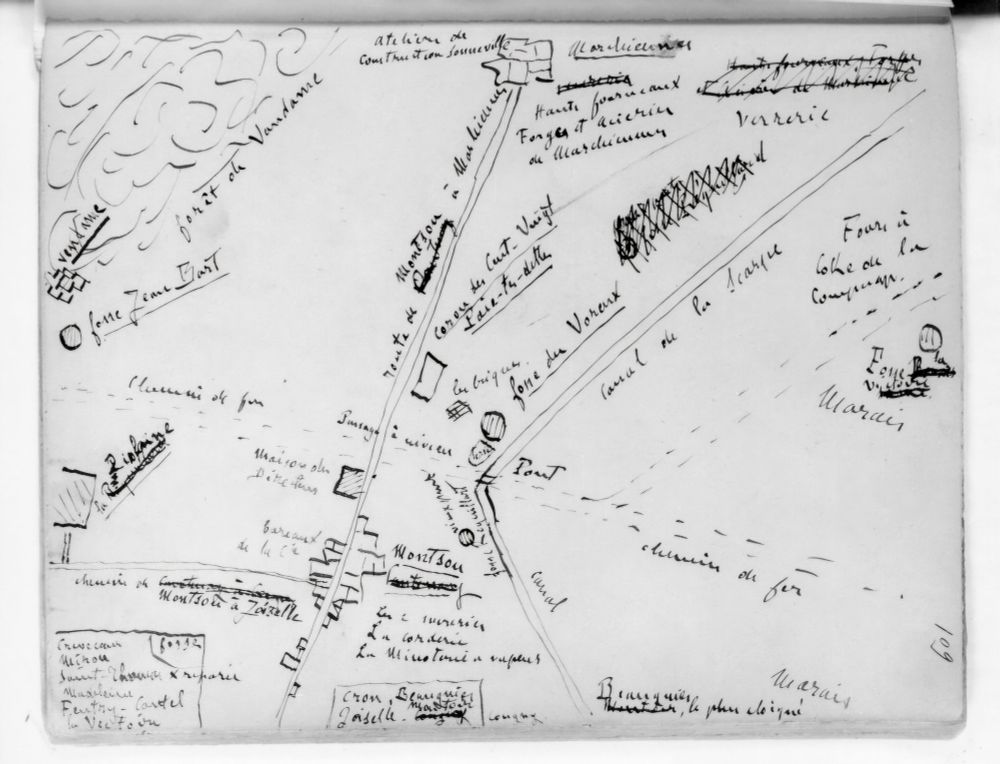 atelier de
Construction Sonneville
Marchiennes
Hauts fourneaux, Forges
Hauts fourneaux
Forges et aciéries
de Marchiennes
Verrerie
forêt de Vandame
Vandame
fosse Jean Bart
route de Montsou à Marchiennes
Coron des Deux-Cent-Quarante
fosse du Voreux
canal de la Scarpe
Fours à
Coke de la
Compagn.
Fosse la
Victoire
Marais
Chemin de fer
Passage à niveau
briques
Pont
la Piolaine
Maison du
Directeur
bureaux
de la Cie
fosse Réquillart
canal
chemin de fer
Montsou
chemin de
Montsou à Joiselle
Les 2 sucreries
La corderie
La Minoterie à vapeur
forges
Crèvecoeur
Mirou
Saint-Thomas x réparée
Madeleine
Feutry-Cantel
la Victoire
Cron, Beaugnies
Joiselle
Cougny
Beaugnies
, le plus éloigné
Marais
109